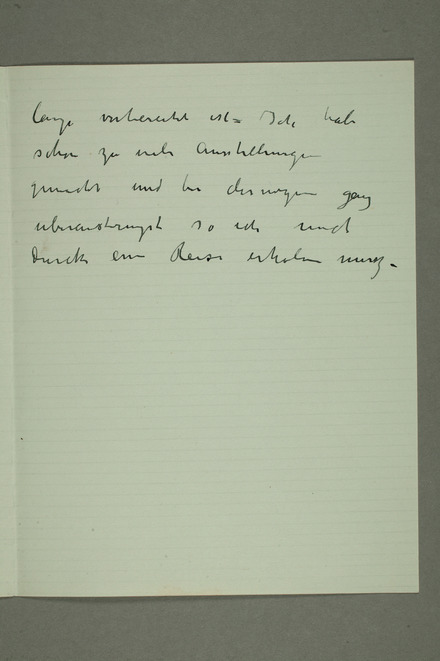 lange vorbereitet ist = Ich habe
schon zu viele Ausstellungen
gemacht und bin deswegen ganz
überanstrengt so ich mich
Durch eine Reise erholen muss –